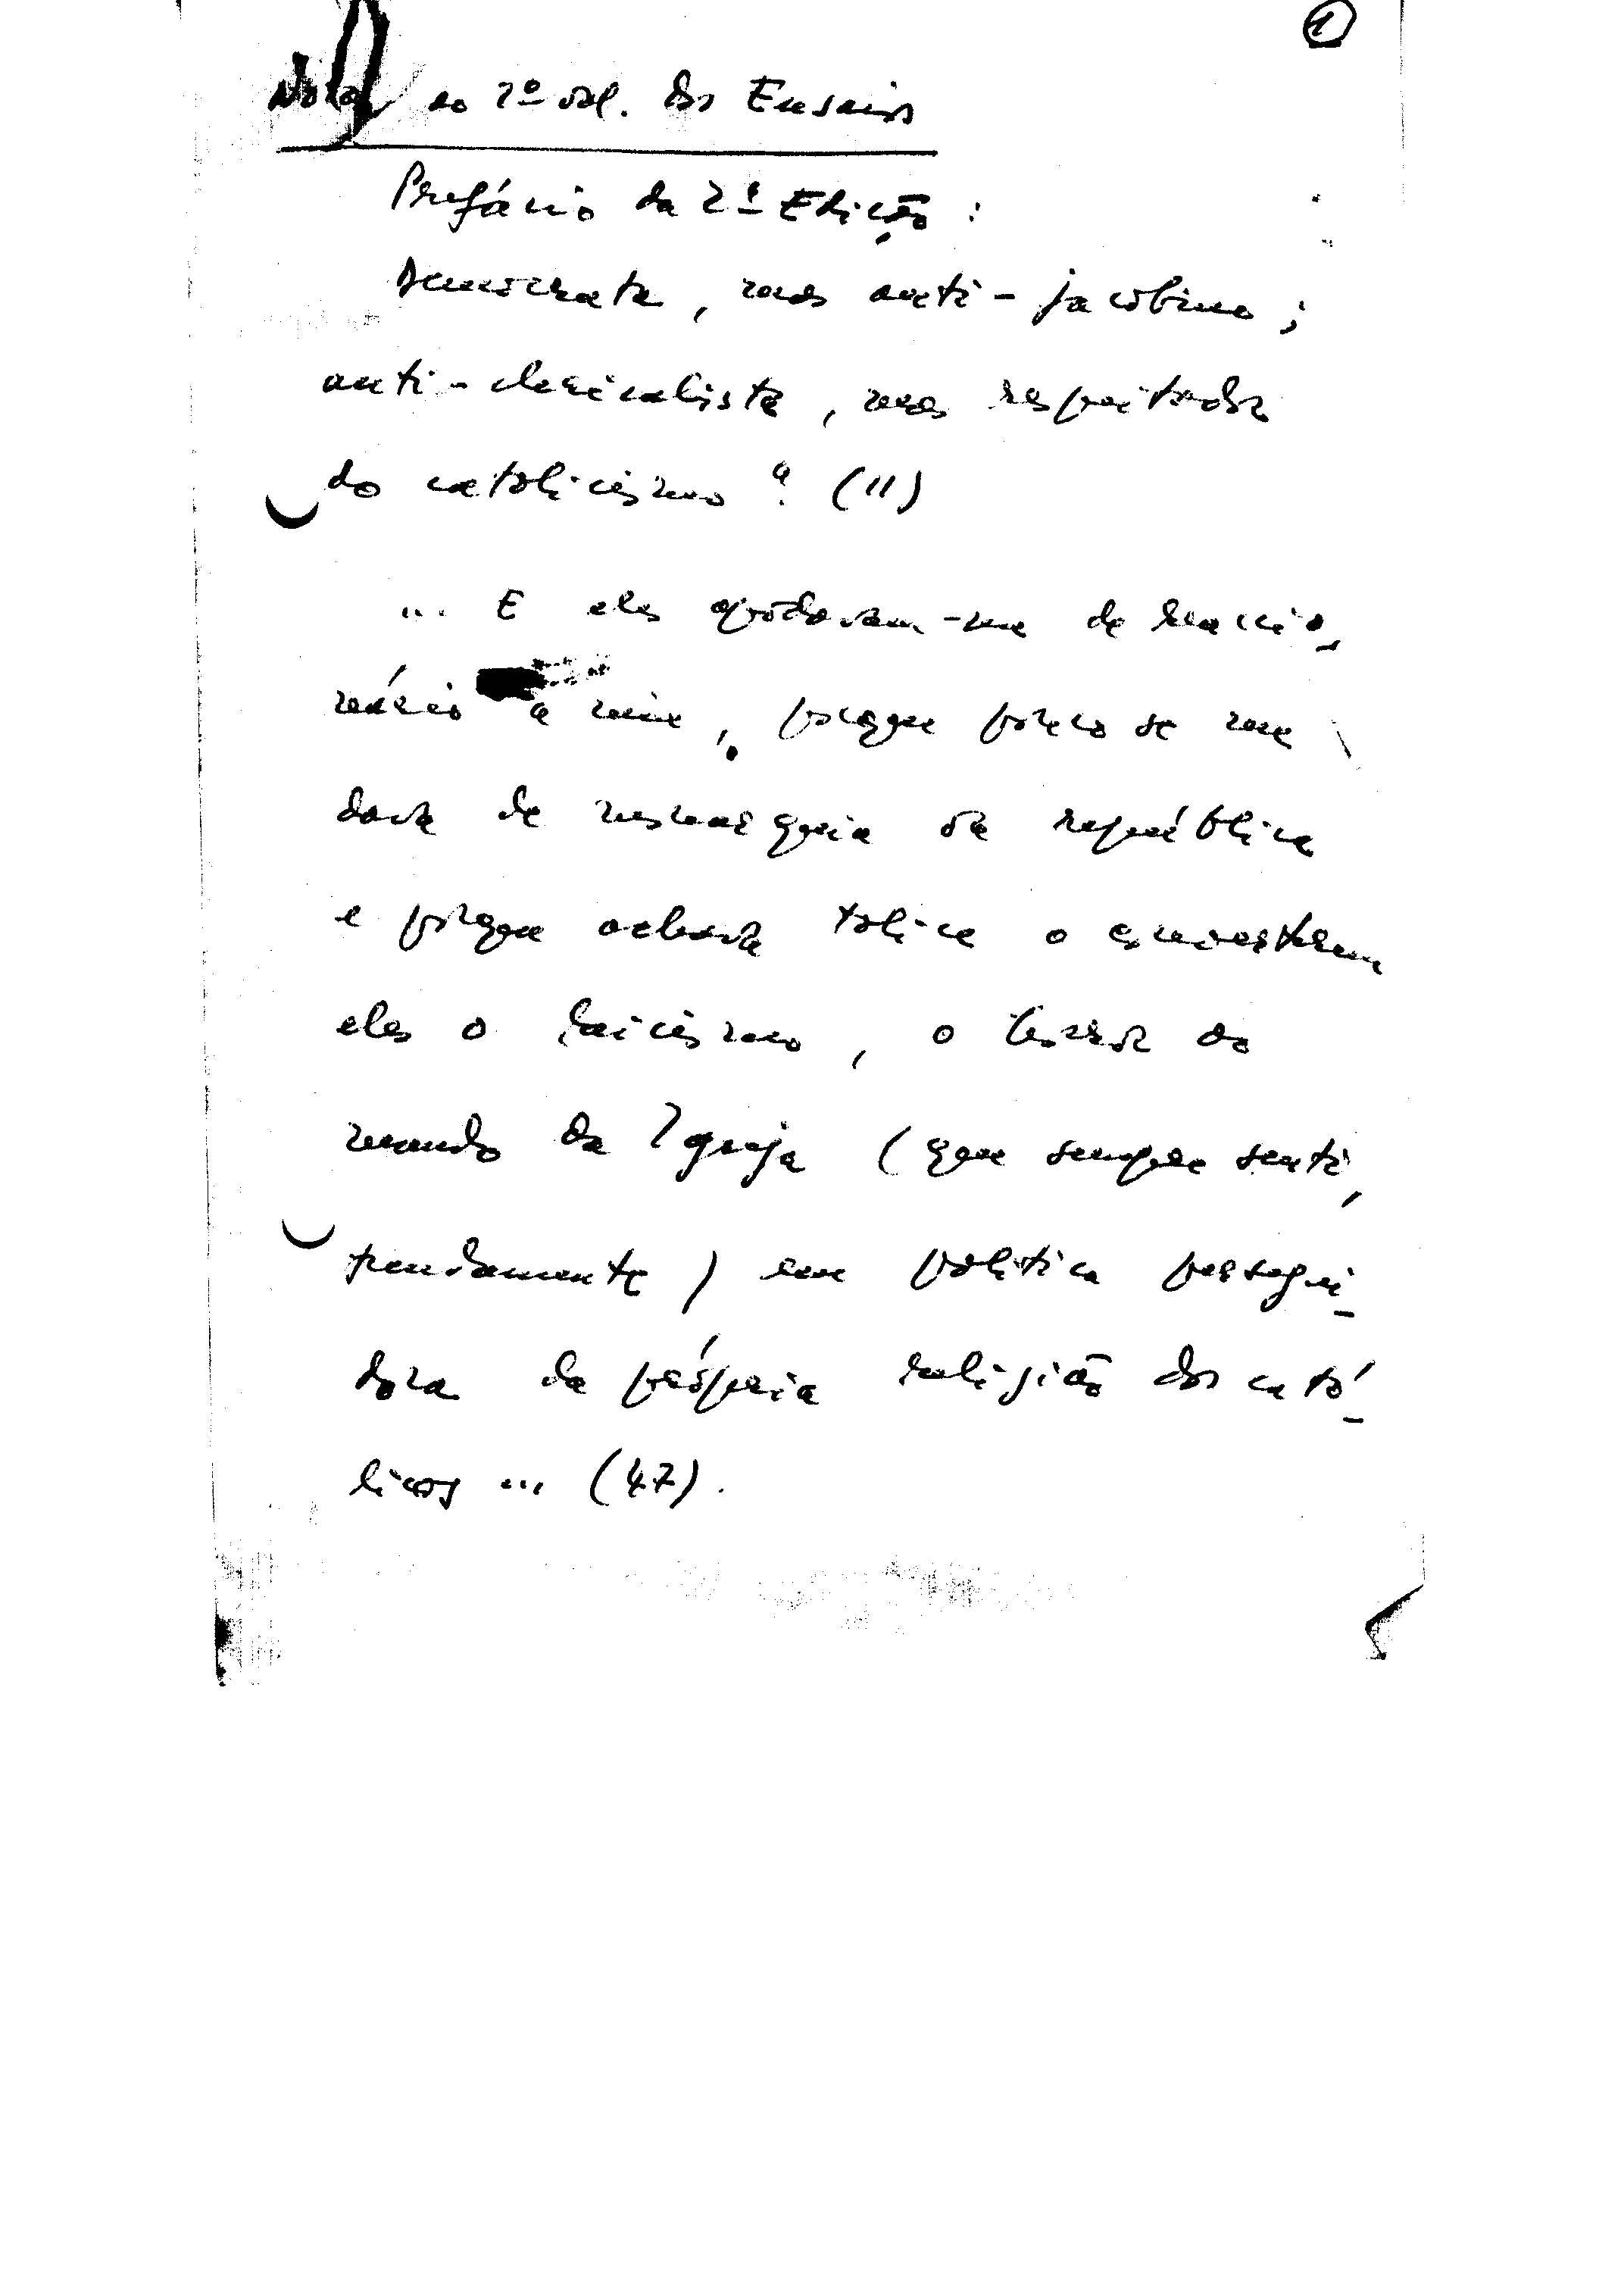 1
Notas ao 2º vol. dos Ensaios
Prefácio da 2ª Edição :
Democrata, mas anti-jacobino ;
anti-clericalista, mas respeitador
do catolicismo" (11)
... E eles apodavam-me de reaccio-
nário a mim, porque pouco se me
dava de monarquia ou república
e porque achava tolice o
eles o laicismo, o terror do
mando da Igreja (que sempre senti,
fundamente) em política persegui-
dora da própria religião dos cató-
licos ... (47).